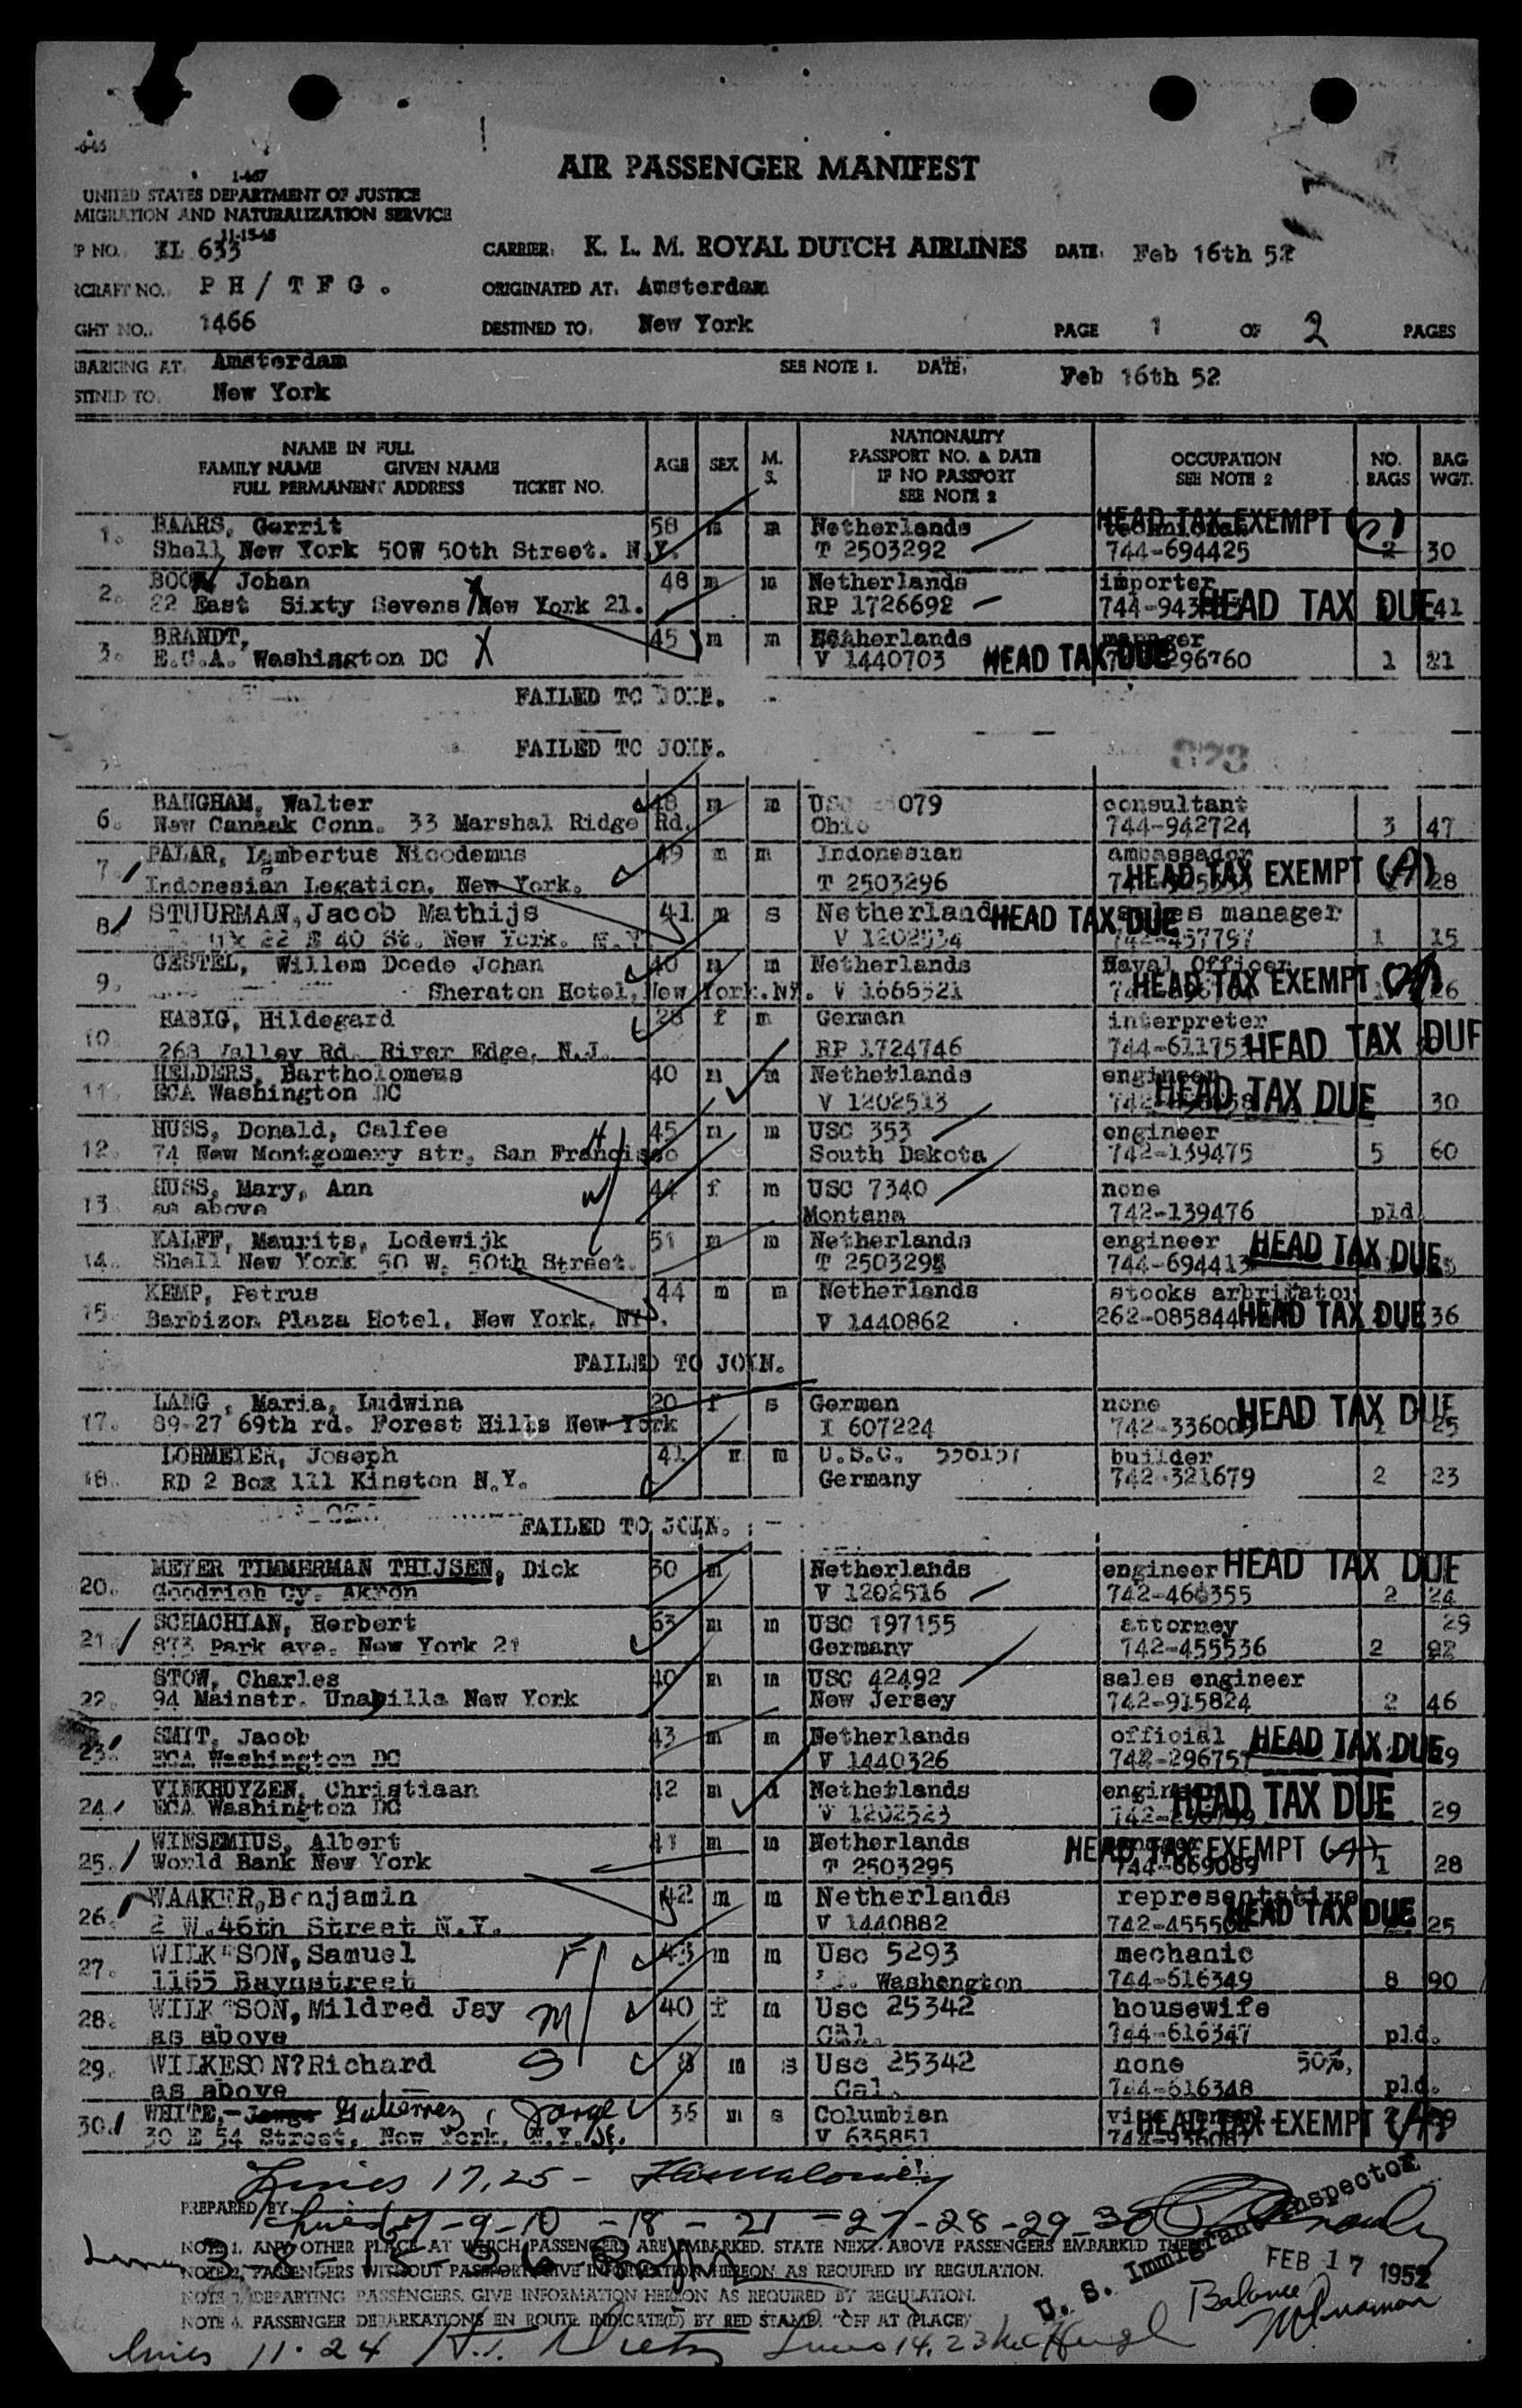 AIR PASSENGER MANIFEST
1-467
UNITED STATES DEPARTMENT OF JUSTICE
MIGRATION AND NATURALIZATION SERVICE
11-15-48
P NO. KL 633 CARRIER: K. L. M. ROYAL DUTCH AIRLINES DATE: Feb 16th 52
RCRAFT NO. PH/TFG. ORIGINATED AT: Amsterdam
GHT NO. 1466 DESTINED TO: New York PAGE 1 OF 2 PAGES
BARKING AT Amsterdam SEE NOTE 1. DATE: Feb 16th 52
STINED TO. New York
NAME IN FULL AGE SEX M. S. NATIONALITY OCCUPATION NO. BAG
FAMILY NAME GIVEN NAME PASSPORT NO. & DATE SEE NOTE 2 BAGS WGT.
FULL PERMANENT ADDRESS TICKET NO. IF NO PASSPORT
SEE NOTE 2
1. BAARS, Gerrit 58 m m Netherlands HEAD TAX EXEMPT
Shell New York 50W 50th Street. N.Y. T 2503292 744-694425 2 30
2. Johan 48 m m Netherlands importer
22 East Sixty Sevens New York 21. RP 1726692 HEAD TAX DUE 41
3. BRANDT, 45 m m Netherlands manager
E.C.A. Washington DC V 1440703 HEAD TAX DUE 296760 1 21
FAILED TO JOIN.
FAILED TO JOIN.
823
6. BAUGHAM, Walter 48 m m USC 079 consultant
New Canaak Conn. 33 Marshal Ridge Rd. Ohio 744-942724 3 47
7. PALAR, Lambertus Nicodemus 49 m m Indonesian ambassador
Indonesian Legation. New York. T 2503296 HEAD TAX EXEMPT (A) 28
8. STUURMAN, Jacob Mathijs 41 m s Netherland HEAD TAX DUE sales manager
22 E 40 St. New York. N.Y. V 1202534 742-457797 1 15
9. GESTEL, Willem Doede Johan 40 m m Netherlands Naval Officer
Sheraton Hotel, New York.NY. V 1666321 HEAD TAX EXEMPT 26
10. HABIG, Hildegard 28 f m German interpreter
268 Valley Rd. River Edge, N.J. RP 1724746 744-61175 HEAD TAX DUE
11. HELDERS, Bartholomeus 40 m m Nethetlands engineer
ECA Washington DC V 1202513 HEAD TAX DUE 30
12. HUSS, Donald, Calfee 45 m m USC 353 engineer
74 New Montgomery str, San Francisco South Dakota 742-139475 5 60
13. HUSS, Mary, Ann 44 f m USC 7340 none
as above Montana 742-139476 pld.
14. KALFF, Maurits, Lodewijk 51 m m Netherlands engineer HEAD TAX DUE
Shell New York 50 W. 50th Street. T 250329 744-69441
15. KEMP, Petrus 44 m m Netherlands stocks arbritator
Barbizon Plaza Hotel, New York, NY. V 1440862 262-085844 HEAD TAX DUE 36
FAILED TO JOIN.
17. LANG, Maria, Ludwina 20 f s German none HEAD TAX DUE
89-27 69th rd. Forest Hills New York I 607224 742-33600 1 25
18. LOHMEIER, Joseph 41 m m U.S.C. builder
RD 2 Box 111 Kinston N.Y. Germany 742-321679 2 23
FAILED TO JOIN.
20. MEYER TIMMERMAN THIJSEN, Dick 30 m Netherlands engineer HEAD TAX DUE
Goodrich Cy. Akron V 1202516 742-466355 2 24
21. SCHACHIAN, Herbert 63 m m USC 197155 attorney 29
873 Park ave. New York 21 Germany 742-455536 2
22. STOW, Charles 40 m m USC 42492 sales engineer
94 Mainstr. Unadilla New York New Jersey 742-915824 2 46
23. SMIT, Jacob 43 m m Netherlands official HEAD TAX DUE
ECA Washington DC V 1440326 742-29675
24. VINKHUYZEN, Christiaan 42 m d Nethetlands HEAD TAX DUE
ECA Washington DC V 1202523 29
25. WINSEMIUS, Albert 41 m m Netherlands HEAD TAX EXEMPT (A)
World Bank New York T 2503295 744-669089 1 28
26. WAAKER, Benjamin 42 m m Netherlands representative
2 W.46th Street N.Y. V 1440882 742-4555 HEAD TAX DUE 25
27. WILKESON, Samuel F 43 m m Usc 5293 mechanic
1165 Baynstreet Washengton 744-616349 8 90
28. WILKESON, Mildred Jay M 40 f m Usc 25342 housewife
as above Cal. 744-616347 pld.
29. WILKESON?Richard S 8 m s Usc 25342 none 50%,
as above Cal. 744-616348 pld.
30. WHITE, Gutierrez, Jorge 36 m s Columbian
30 E 54 Street, New York. N.Y. V 635851 HEAD TAX EXEMPT
Lines 17, 25 -
PREPARED BY
-9-10-18-21-27-28-29-30
NOTE 1. ANY OTHER PLACE AT WHICH PASSENGERS ARE EMBARKED. STATE NEXT ABOVE PASSENGERS EMBARKED THERE
NOTE 2. PASSENGERS WITHOUT PASSPORT GIVE INFORMATION HEREON AS REQUIRED BY REGULATION.
NOTE 3. DEPARTING PASSENGERS. GIVE INFORMATION HEREON AS REQUIRED BY REGULATION.
NOTE 4. PASSENGER DEBARKATIONS EN ROUTE INDICATE(D) BY RED STAMP. "OFF AT (PLACE)
U. S. Immigrant Inspector
FEB 17 1952
Balance
Lines 11-24 Lines 14, 23